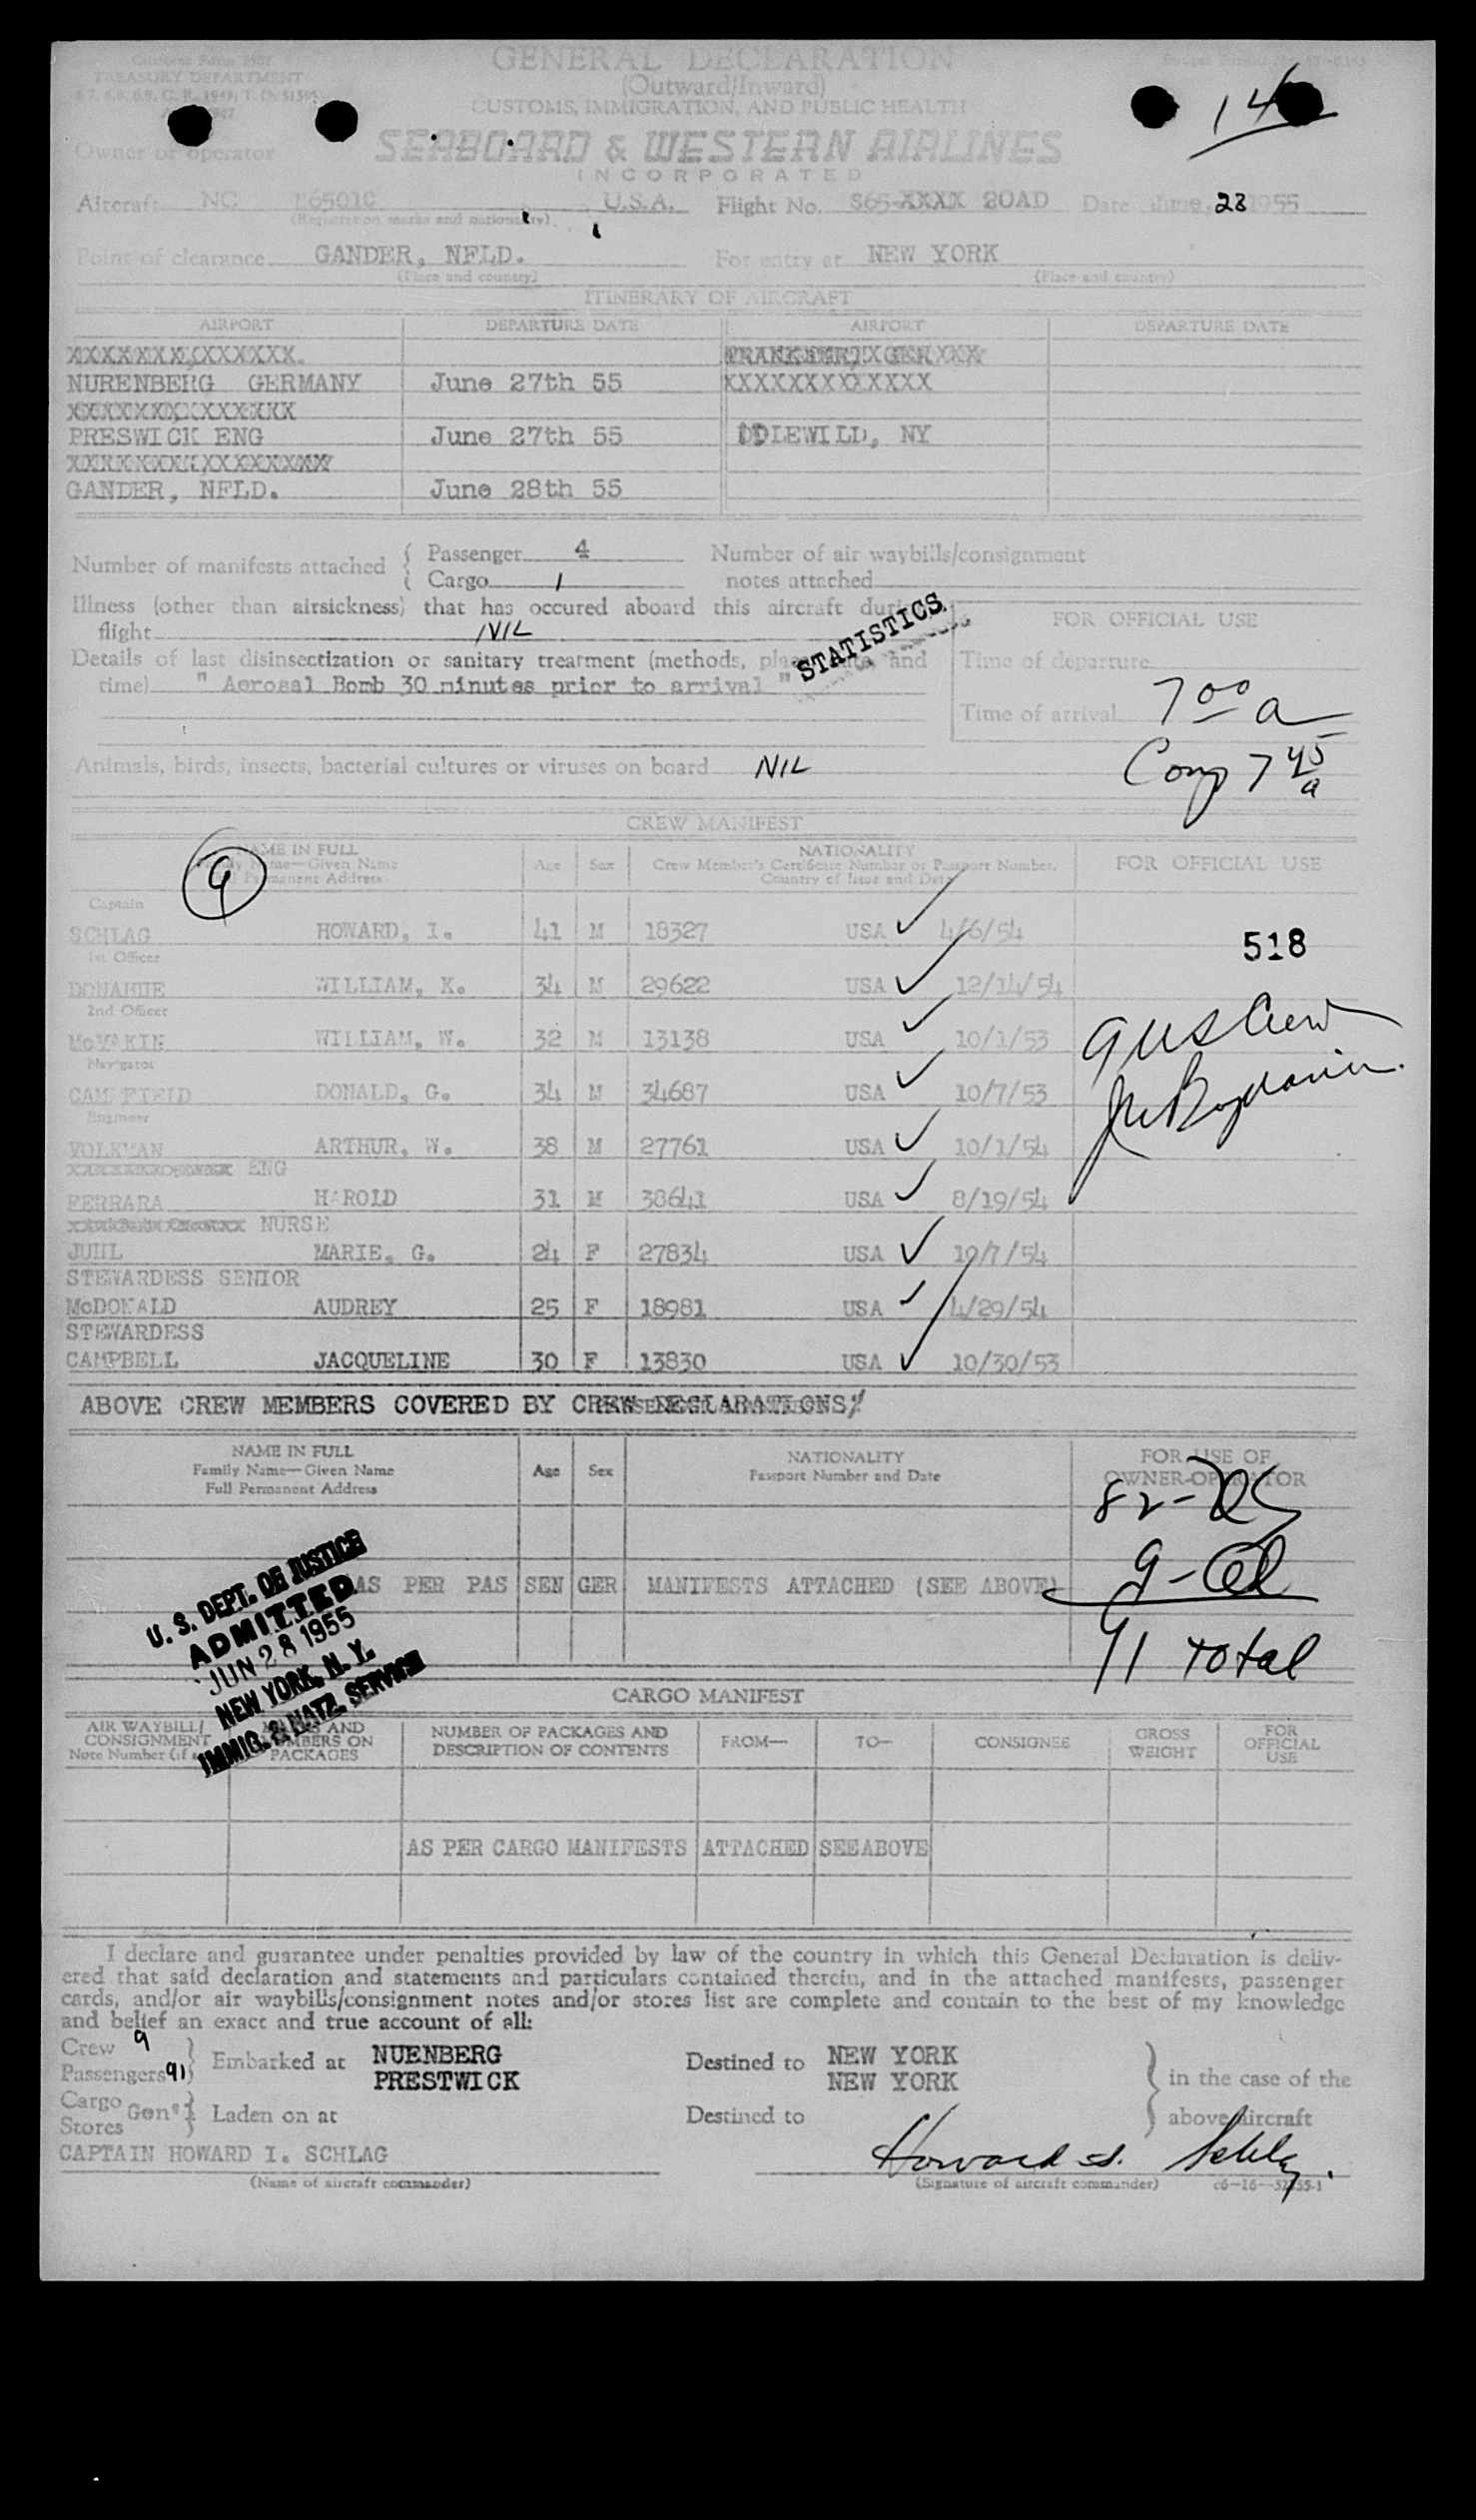 GENERAL DECLARATION
(Outward/Inward)
CUSTOMS, IMMIGRATION, AND PUBLIC HEALTH
TREASURY DEPARTMENT
14
Owner or operator
SEABOARD & WESTERN AIRLINES
INCORPORATED
Aircraft NC N6501C U.S.A. Flight No. S65-XXXX 20AD Date June, 28 1955
(Registration marks and nationality)
Point of clearance GANDER, NFLD. For entry at NEW YORK
(Place and country) (Place and country)
ITINERARY OF AIRCRAFT
AIRPORT DEPARTURE DATE AIRPORT DEPARTURE DATE
NURENBERG GERMANY June 27th 55
PRESWICK ENG June 27th 55 IDLEWILD, NY
GANDER, NFLD. June 28th 55
Number of manifests attached { Passenger 4 Number of air waybills/consignment
{ Cargo 1 notes attached
Illness (other than airsickness) that has occured aboard this aircraft during
flight NIL
STATISTICS
FOR OFFICIAL USE
Details of last disinsectization or sanitary treatment (methods, place, date and
time) " Aerosal Bomb 30 minutes prior to arrival "
Time of departure
Time of arrival 7 00 a
Comp 7 45 a
Animals, birds, insects, bacterial cultures or viruses on board NIL
CREW MANIFEST
9
NAME IN FULL
Family Name—Given Name
Permanent Address
Age Sex
NATIONALITY
Crew Member's Certificate Number or Passport Number,
Country of Issue and Date
FOR OFFICIAL USE
Captain
SCHLAG HOWARD, I. 41 M 18327 USA ✓ 4/6/54
518
1st Officer
DONAHUE WILLIAM, K. 34 M 29622 USA ✓ 12/14/54
2nd Officer
WILLIAM, W. 32 M 13138 USA ✓ 10/1/53
9 US Crew
Navigator
DONALD, G. 34 M 34687 USA ✓ 10/7/53
Engineer
VOLKMAN ARTHUR, W. 38 M 27761 USA ✓ 10/1/54
ENG
FERRARA HAROLD 31 M 38641 USA ✓ 8/19/54
NURSE
JUHL MARIE, G. 24 F 27834 USA ✓ 10/7/54
STEWARDESS SENIOR
McDONALD AUDREY 25 F 18981 USA ✓ 4/29/54
STEWARDESS
CAMPBELL JACQUELINE 30 F 13830 USA ✓ 10/30/53
ABOVE CREW MEMBERS COVERED BY CREW DECLARATIONS
NAME IN FULL
Family Name—Given Name
Full Permanent Address
Age Sex
NATIONALITY
Passport Number and Date
FOR USE OF
OWNER-OPERATOR
AS PER PASSENGER MANIFESTS ATTACHED (SEE ABOVE)
91 Total
U. S. DEPT. OF JUSTICE
ADMITTED
JUN 28 1955
NEW YORK, N. Y.
IMMIG. & NATZ. SERVICE
CARGO MANIFEST
AIR WAYBILL/
CONSIGNMENT
Note Number (if
MARKS AND
NUMBERS ON
PACKAGES
NUMBER OF PACKAGES AND
DESCRIPTION OF CONTENTS
FROM— TO— CONSIGNEE
GROSS
WEIGHT
FOR
OFFICIAL
USE
AS PER CARGO MANIFESTS ATTACHED SEE ABOVE
I declare and guarantee under penalties provided by law of the country in which this General Declaration is deliv-
ered that said declaration and statements and particulars contained therein, and in the attached manifests, passenger
cards, and/or air waybills/consignment notes and/or stores list are complete and contain to the best of my knowledge
and belief an exact and true account of all:
Crew 9 } Embarked at NUENBERG Destined to NEW YORK
Passengers 91 } PRESTWICK NEW YORK } in the case of the
Cargo Gen'l } Laden on at Destined to } above aircraft
Stores
CAPTAIN HOWARD I. SCHLAG Howard I. Schlag.
(Name of aircraft commander) (Signature of aircraft commander)